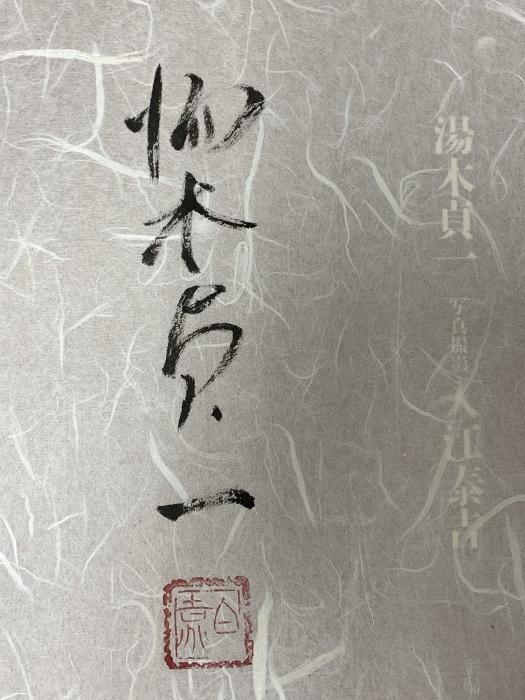 湯木貞一 写真撮影 入江泰吉
湯木貞一